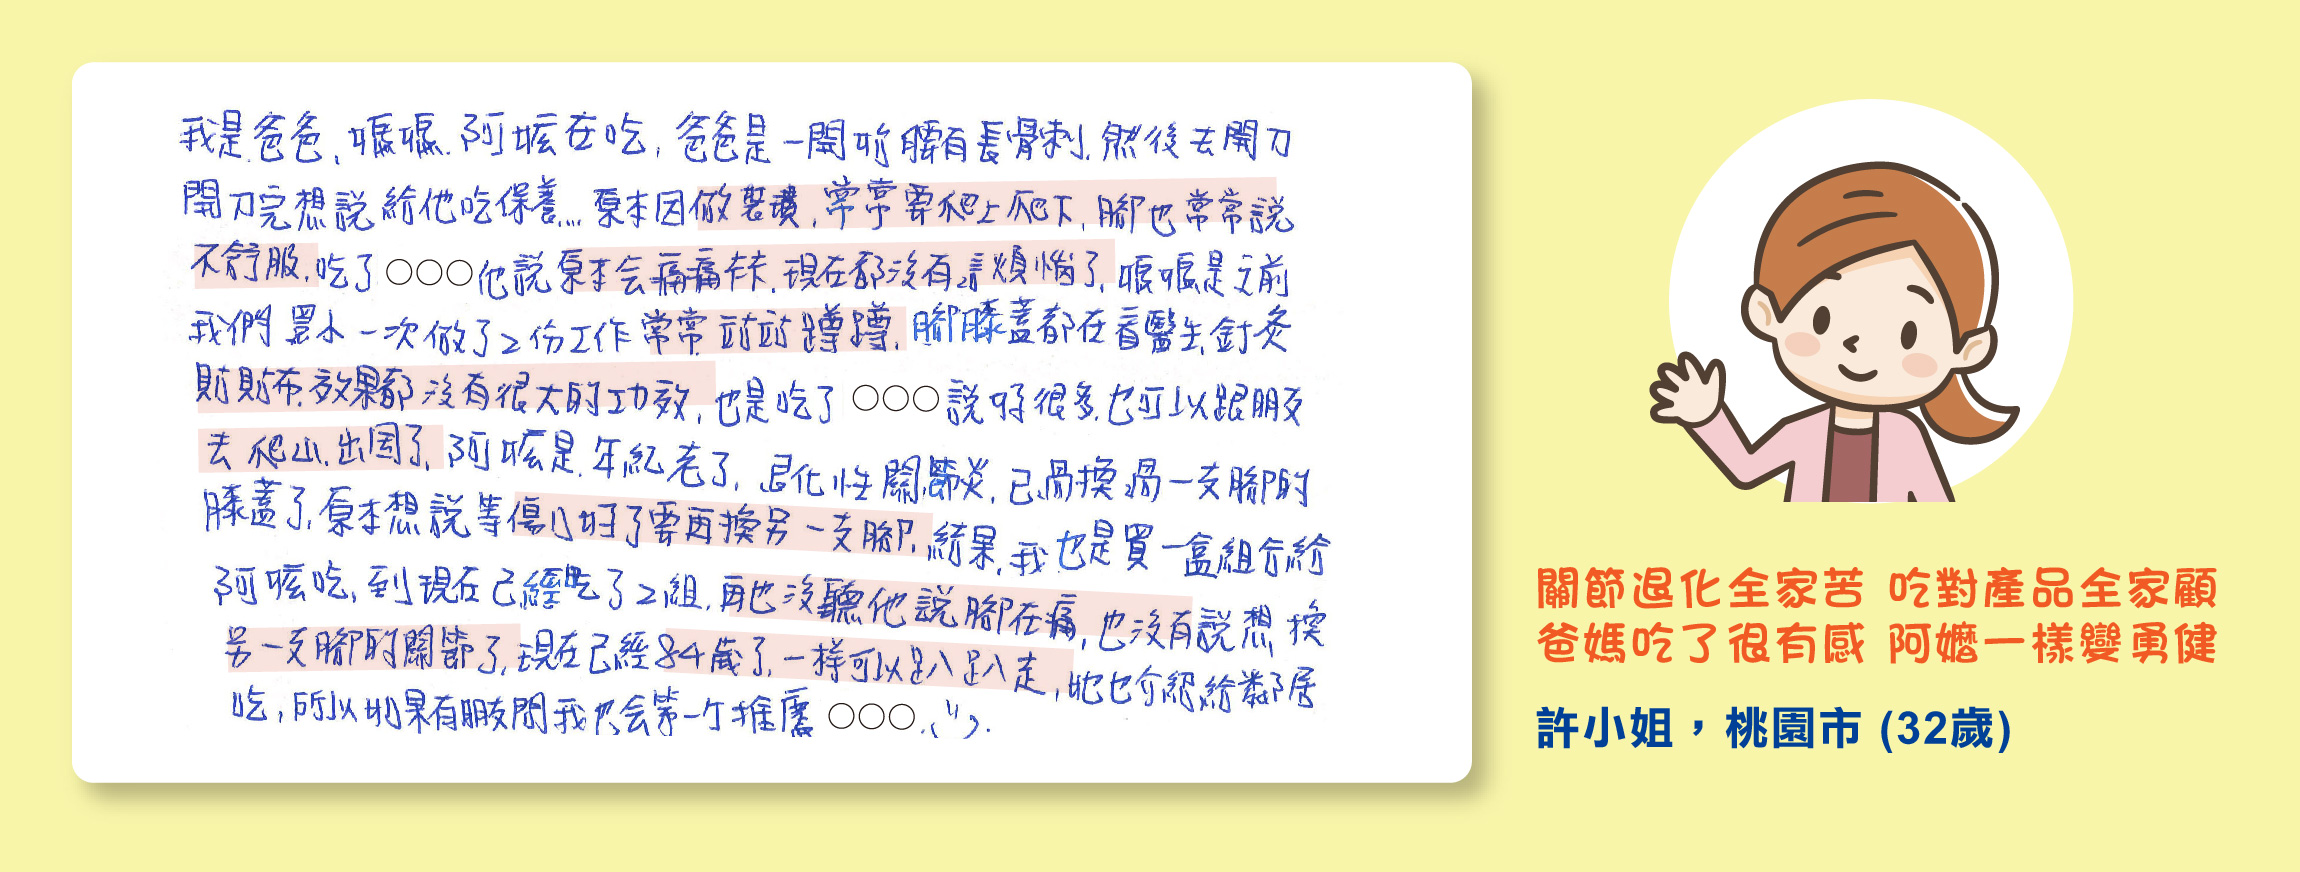 我是爸爸、嘔嘔、阿嬤在吃,爸爸是一開始腰有長骨刺.然後去開刀
開刀完想說給他吃保養... 原本因做裝璜,常常要爬上爬下,腳也常常說
不舒服,吃了○○○他說原本会痛痛卡卡.現在都沒有言煩惱了,嘔嘔是之前
我們 一次做了2份工作常常站站蹲蹲,腳膝蓋都在看醫生針灸
貼貼布.效果都沒有很大的功效,也是吃了○○○說好很多.也可以跟朋友
去爬山.出国了,阿嬤是.年紀老了,退化性關節炎,已過換過一支腳的
膝蓋了,原本想說等傷口好了要再換另一支腳,結果,我也是買一盒組合給
阿嬤吃,到現在已經吃了2組,再也沒聽他說腳在痛,也沒有說想換
另一支腳的關節了,現在已經84歲了,一樣可以趴趴走,她也介紹給鄰居
吃,所以如果有朋友問我也会第一个推薦○○○.
關節退化全家苦 吃對產品全家顧
爸媽吃了很有感 阿嬤一樣變勇健
許小姐,桃園市 (32歲)